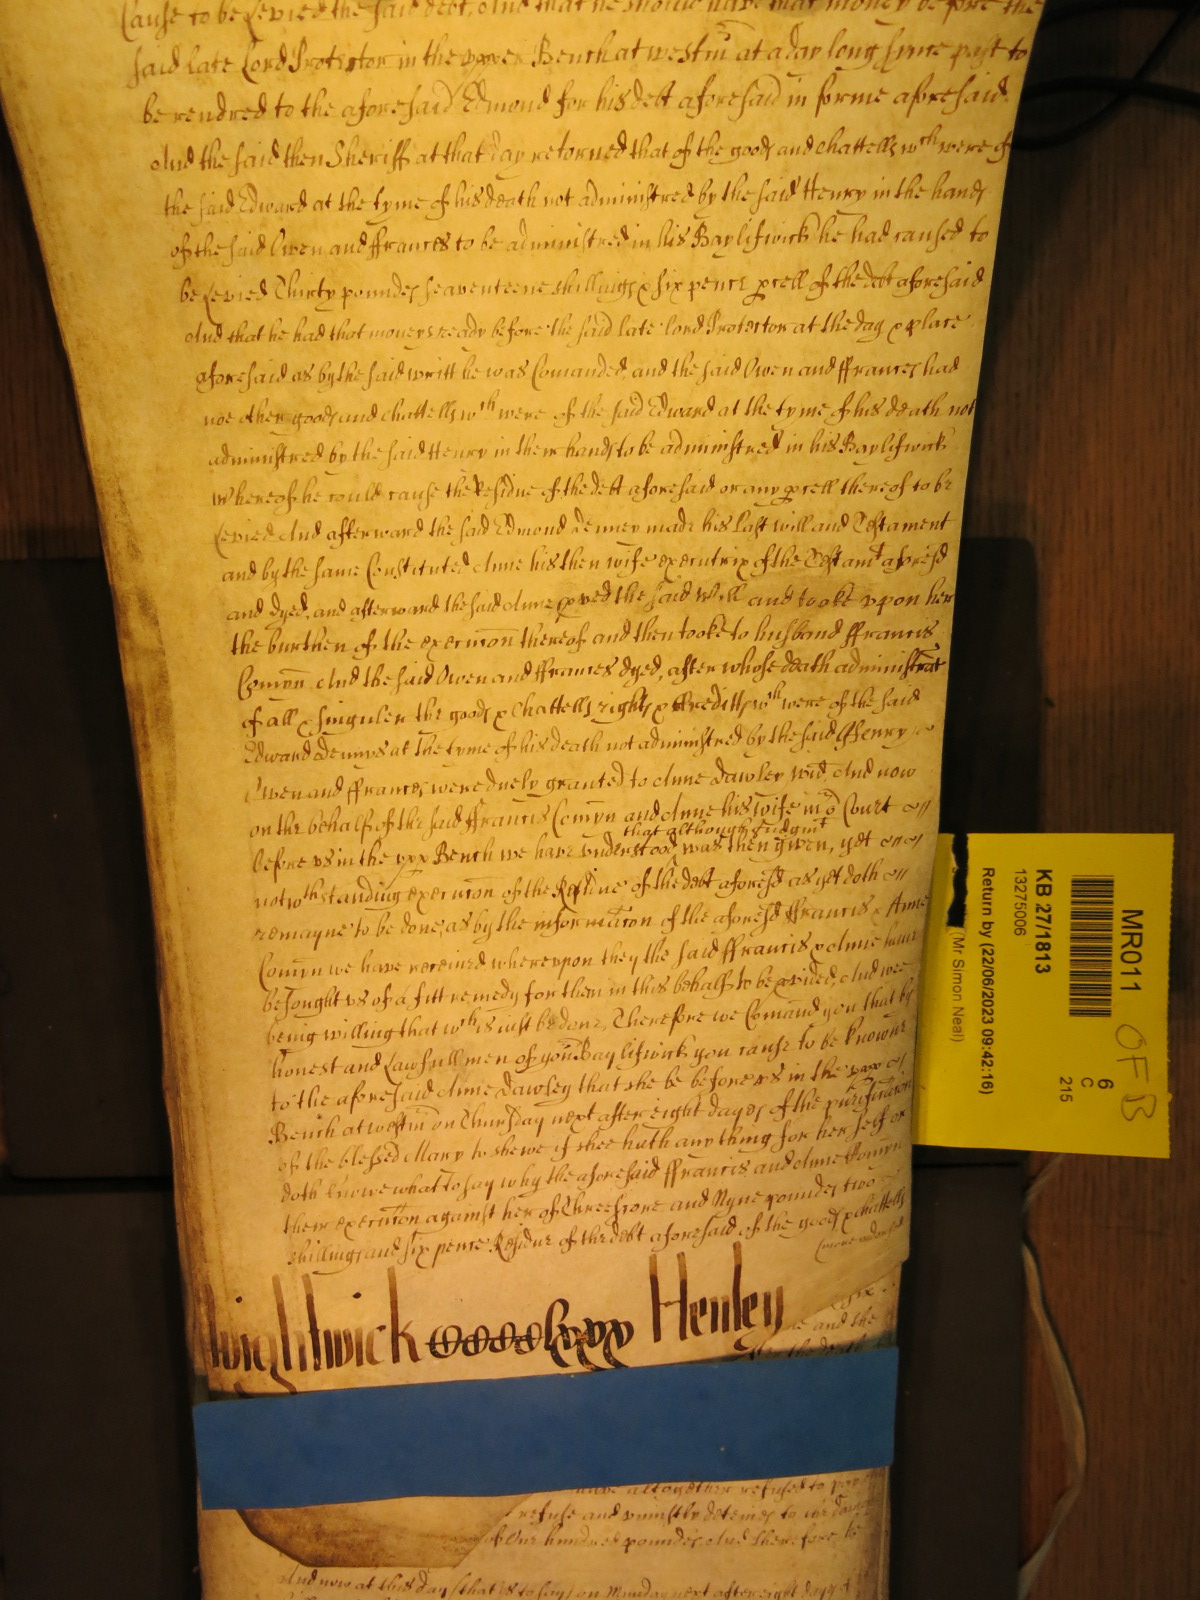 Cause to be Levied the said debt, And that he should have that money before the
said late Lord Protector in the upper Bench at westm at a day long since past to
be rendred to the aforesaid Edmond for his debt aforesaid in forme aforesaid.
And the said then Sheriff at that day retorned that of the goods and chattells wch were of
the said Edward at the tyme of his death not administred by the said Henry in the hands
of the said Owen and ffrances to be administred in his Baylifwick he had caused to
be Levied Thirty poundes seaventeene shillings & six pence pcell of the debt aforesaid
And that he had that moneys ready before the said late lord Protector at the day & place
aforesaid as by the said writt he was Comanded, and the said Owen and ffrances had
noe other goods and chattells wth were of the said Edward at the tyme of his death not
administred by the said Henry in their hands to be administred in his Baylifwick
Whereof he could cause the Residue of the debt aforesaid or any pcell thereof to be
Levied And afterward the said Edmond Denney made his last will and Testament
and by the same Constituted Anne his then wife executrix of the Testamt aforesd
and dyed, and afterward the said Anne pved the said Will and tooke upon her
the burthen of the execucon thereof and then tooke to husband ffrancis
Comyn And the said Owen and ffrances dyed, after whose death administrac
of all & singuler the goods & chattells rights & Creditts wch were of the said
Edward Dennys at the tyme of his death not administred by the said Henry
Owen and ffrances were duely granted to Anne Dawley wid, And now
on the behalf of the said ffrancis Comyn and Anne his wife in or Court
that although Judgmt
before us in the upp Bench we have understood was then given, yet
notwthstanding execucon of the Residue of the debt aforesd as yet doth
remayne to be done, as by the informacon of the aforesd ffrancis & Anne
Comyn we have received whereupon they the said ffrancis & Anne have
besought us of a fitt remedy for them in this behalf to be pvided, And wee
being willing that wch is iust be done, Therefore we Comaund you that by
honest and Lawfull men of your Baylifwick you cause to be knowne
to the aforesaid Anne Dawley that she be before us in the upp
Bench at westm on Thursday next after eight dayes of the purificacon
of the blessed Mary to shewe if shee hath any thing for her self or
doth knowe what to say why the aforesaid ffrancis and Anne Comyn
their execucon against her of Threescore and Nyne poundes two
shillings and six pence Residue of the debt aforesaid of the goods & chattells
Wightwick Henley
and the
have altogether refused to pay
refuse and uniustly deteines to the damage
of One hundred poundes And therefore he
And now at this day (that is to say) on Munday next after eight dayes of
MR011
6
C
215
OF B
KB 27/1813
13275006
Return by (22/06/2023 09:42:16)
(Mr Simon Neal)